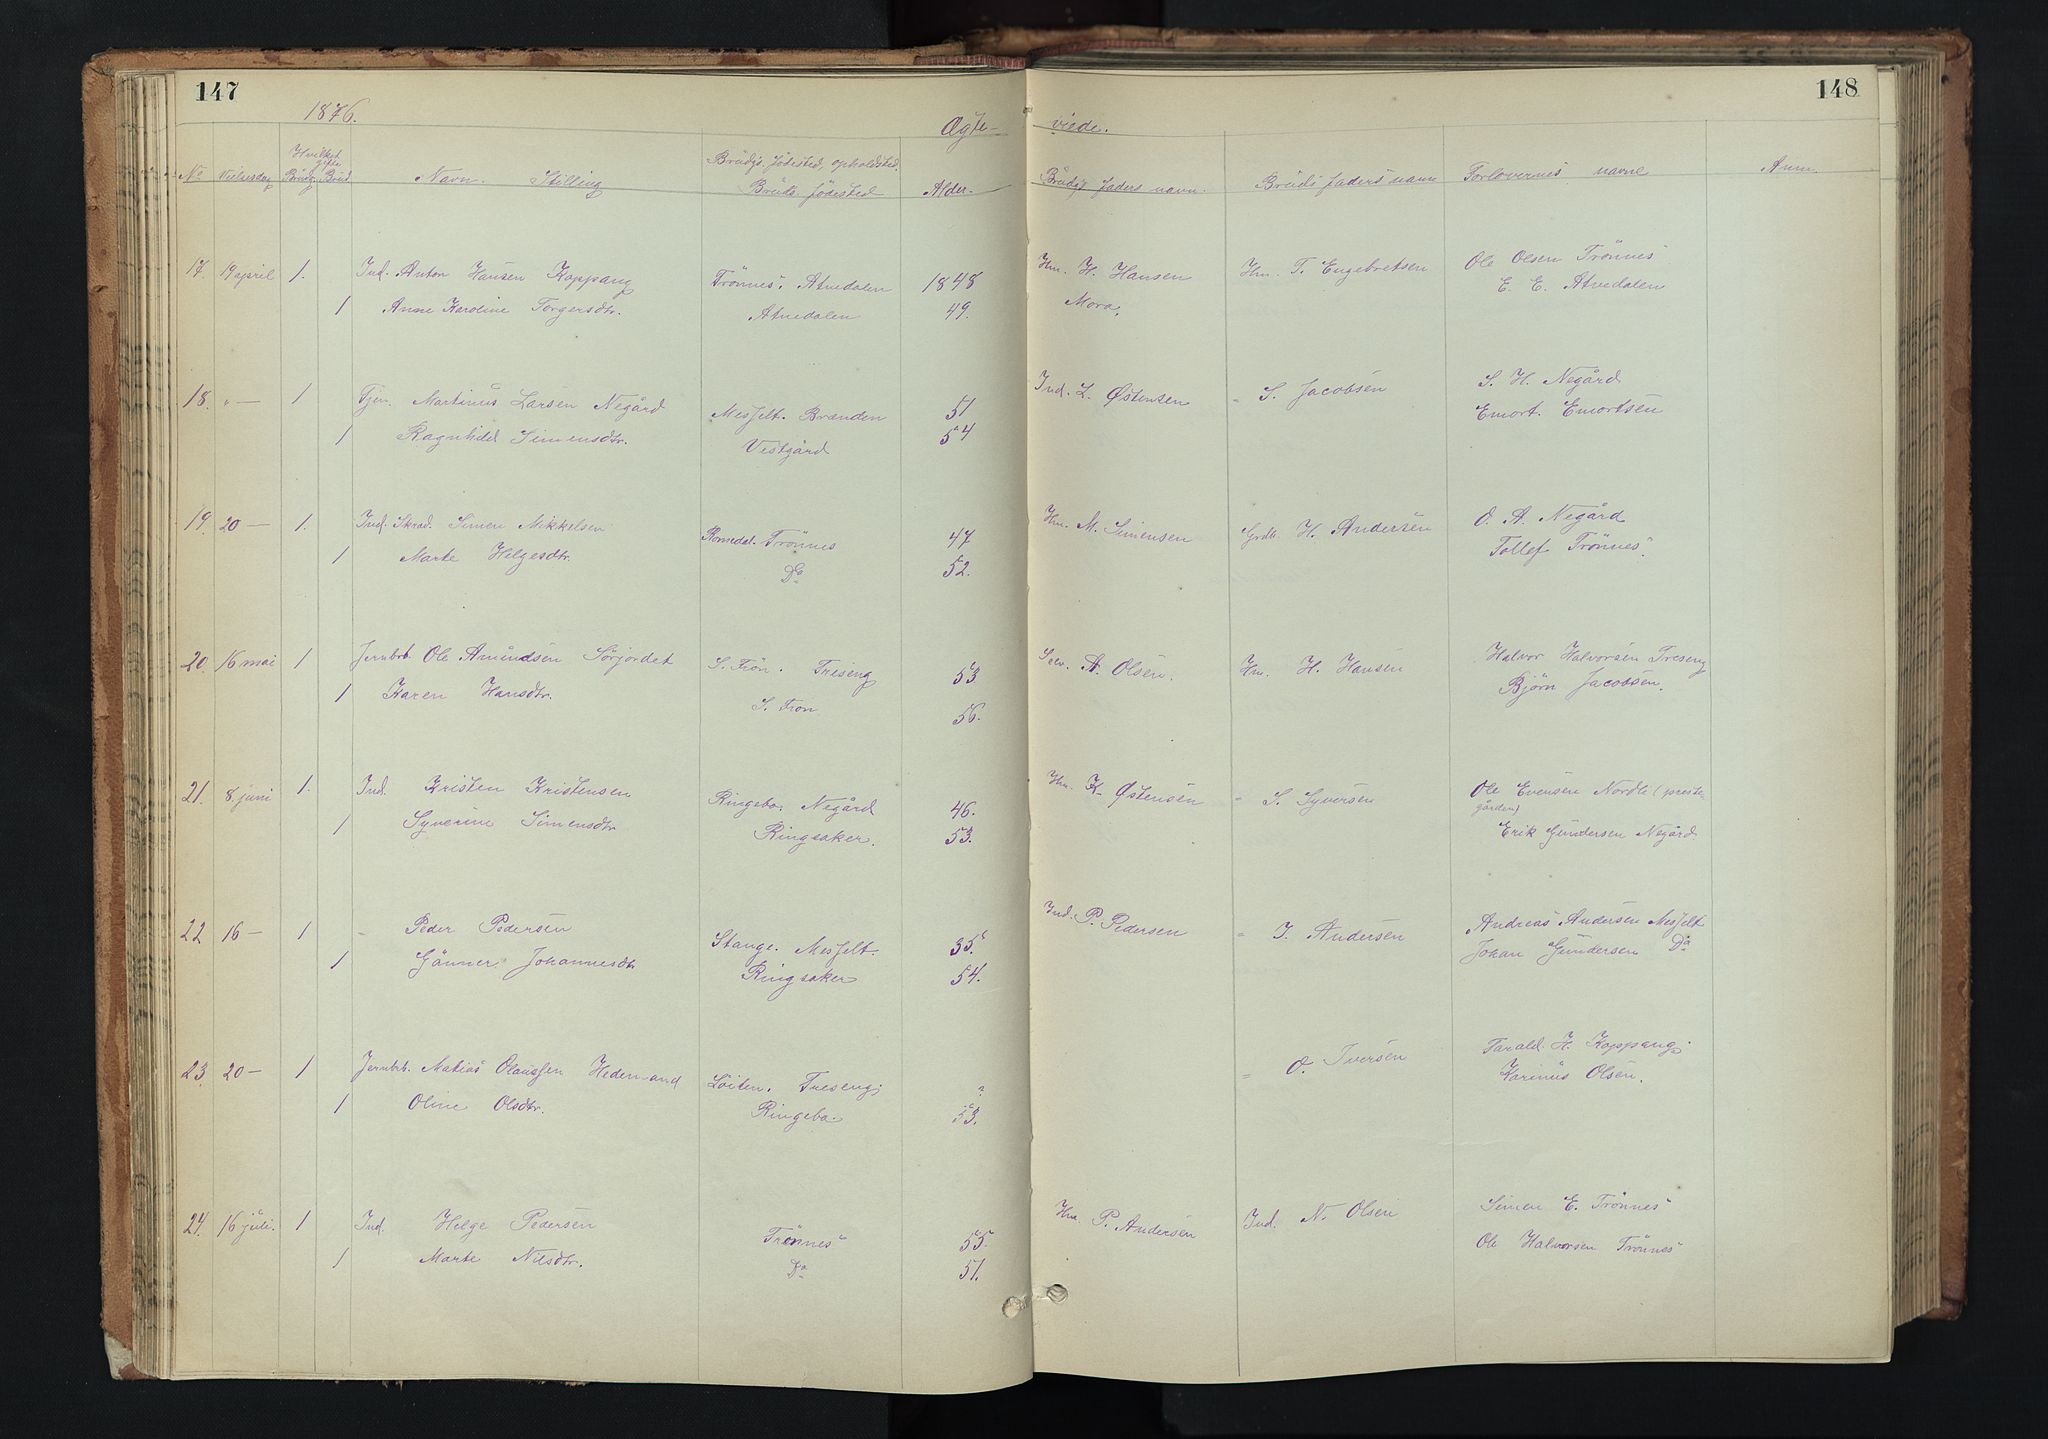 147
1876.
Ægte-
No Vielsesdag Hvilket gifte Brudg. Brud. Navn. Stilling Brudgs. fødested, opholdsted. Bruds fødested Alder.
17. 19 april 1. Ind. Anton Hansen Koppang Trønnes; Atnedalen 1848
1 Anne Karoline Torgersdtr. Atnedalen 49.
18. " — 1 Tjen. Martinus Larsen Negård Mesfelt. Brænden 51
1 Ragnhild Simensdtr. Vestgård 54
19. 20 — 1. Ind. Skræd. Simen Mikkelsen Romedal. Trønnes 47
1 Marte Helgesdtr. Do 52.
20. 16 mai 1 Jernbrb. Ole Amundsen Sørjordet S. Fron. Treseng 53
1 Karen Hansdtr. S. Fron 56.
21. 8. juni 1. Ind. Kristen Kristensen Ringebo. Negård 46.
1 Syverine Simensdtr Ringsaker. 53.
22 16 — 1 - Peder Pedersen Stange. Mesfelt. 35.
1 Gunner Johannesdtr Ringsaker 54.
23. 20 — 1 Jernbrb. Matias Olaussen Hedemand Løiten. Treseng; ?
1 Oline Olsdtr. Ringebo. 53.
24. 16 juli. 1 Ind. Helge Pedersen Trønnes 55.
1 Marte Nilsdtr. Do 51.
148
viede.
Brudgs faders navn. Bruds faders navn Forlovernes navne Anm.
Hm. H. Hansen Hm. T. Engebretsen Ole Olsen Trønnes
Mora. E. E. Atnedalen
Ind. L. Østensen - S. Jacobsen S. H. Negård
Emort. Emortsen
Hm. M. Simensen Grdb. H. Andersen O. A. Negård
Tollef Trønnes.
Selv. A. Olsen. Hm. H. Hansen Halvor Halvorsen Treseng
Bjørn Jacobsen.
Hm. K. Østensen - S. Syversen Ole Evensen Nordli (prestegården)
Erik Gundersen Negård
Ind. P. Pedersen - J. Andersen Andreas Andersen Mesfelt
Johan Gundersen Do
- O. Iversen Tarald. H. Koppang;
Karinus Olsen.
Hm. P. Andersen Ind. N. Olsen Simen E. Trønnes
Ole Halvorsen Trønnes